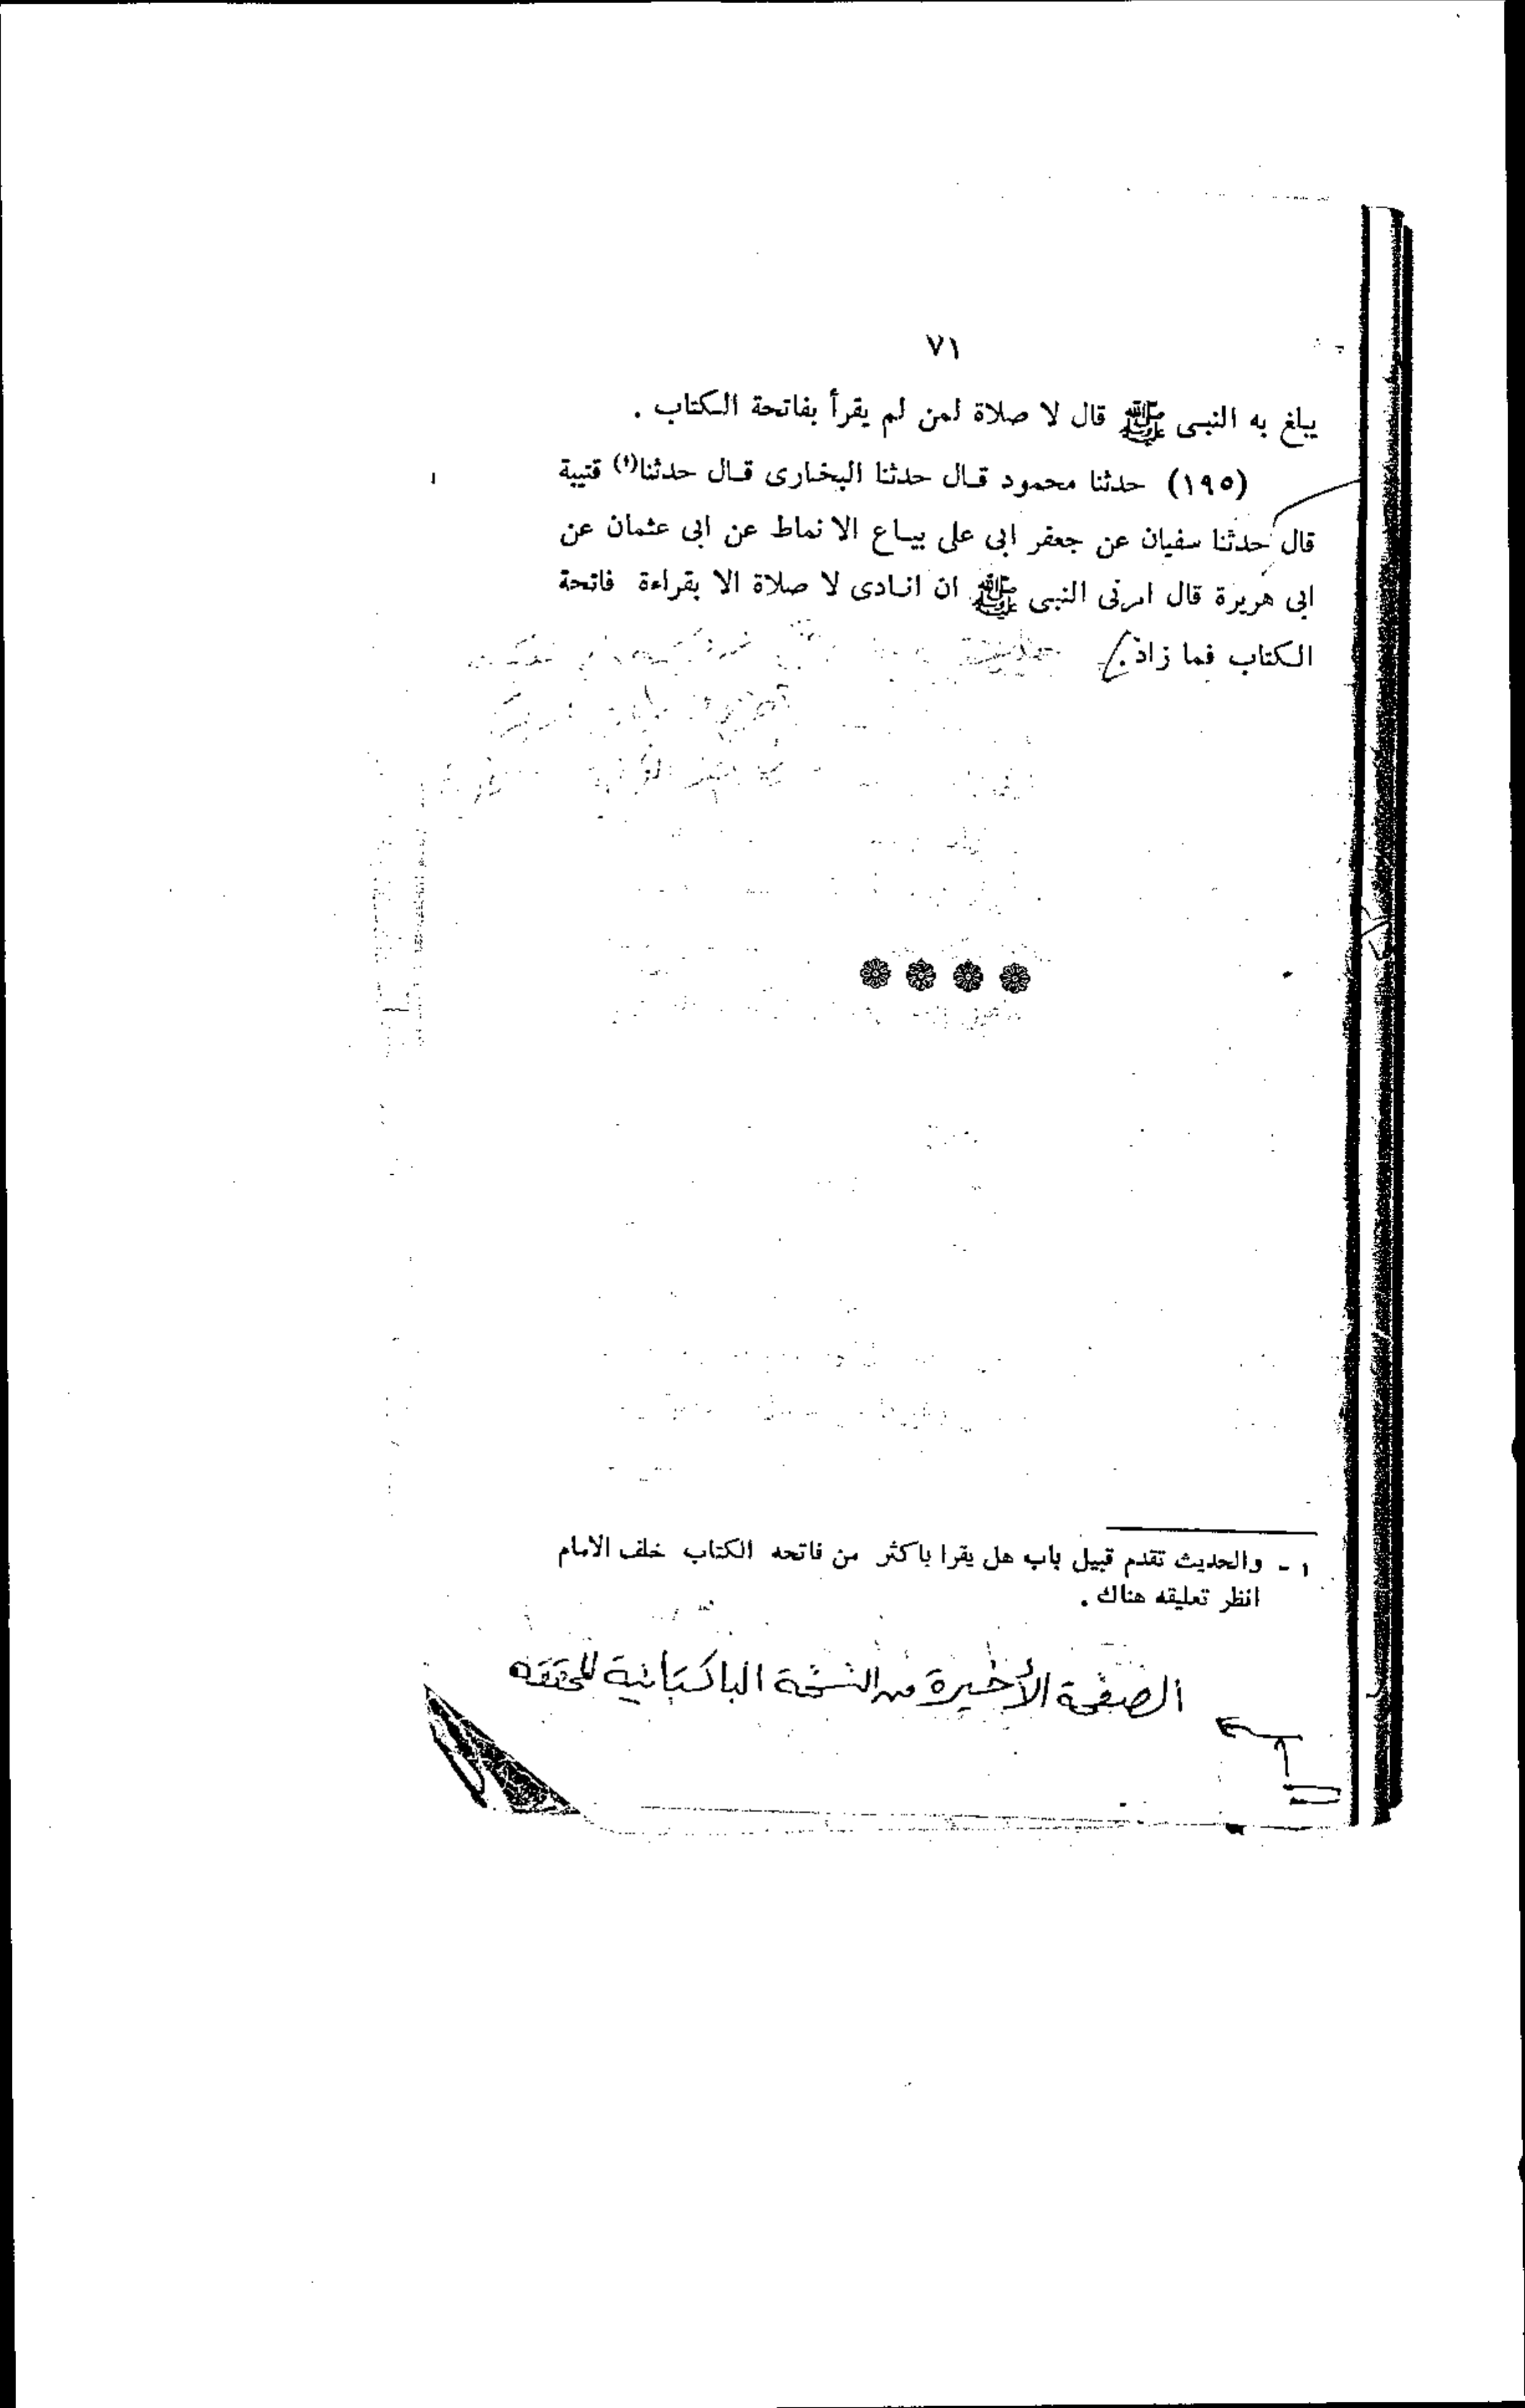 ٧١
يبلغ به النبى ﷺ قال لا صلاة لمن لم يقرأ بفاتحة الكتاب .
(١٩٥) حدثنا محمود قال حدثنا البخارى قال حدثنا(١) قتيبة
قال حدثنا سفيان عن جعفر ابى على بياع الانماط عن ابى عثمان عن
ابى هريرة قال امرنى النبى ﷺ ان انادى لا صلاة الا بقراءة فاتحة
الكتاب فما زاد .
١ - والحديث تقدم قبيل باب هل يقرا باكثر من فاتحه الكتاب خلف الامام
انظر تعليقه هناك .
الصفحة الأخيرة من النسخة الباكستانية المحققة